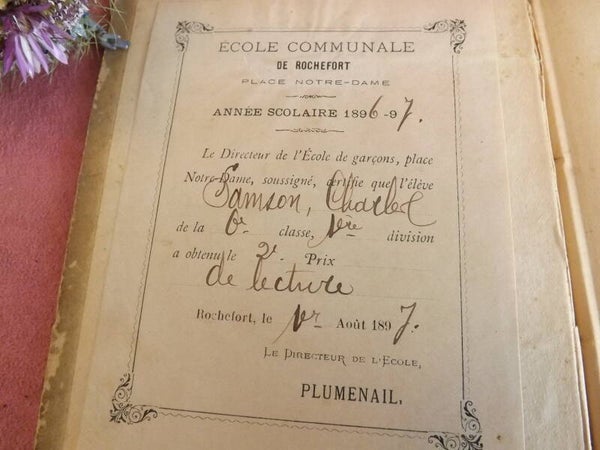 ÉCOLE COMMUNALE
DE ROCHEFORT
PLACE NOTRE-DAME
ANNÉE SCOLAIRE 1896-97.
Le Directeur de l'École de garçons, place
Notre-Dame, soussigné, certifie que l'élève
Samson, Charles
de la 6e classe, 1re division
a obtenu le 2e Prix
de lecture
Rochefort, le 1er Août 1897.
LE DIRECTEUR DE L'ECOLE,
PLUMENAIL.